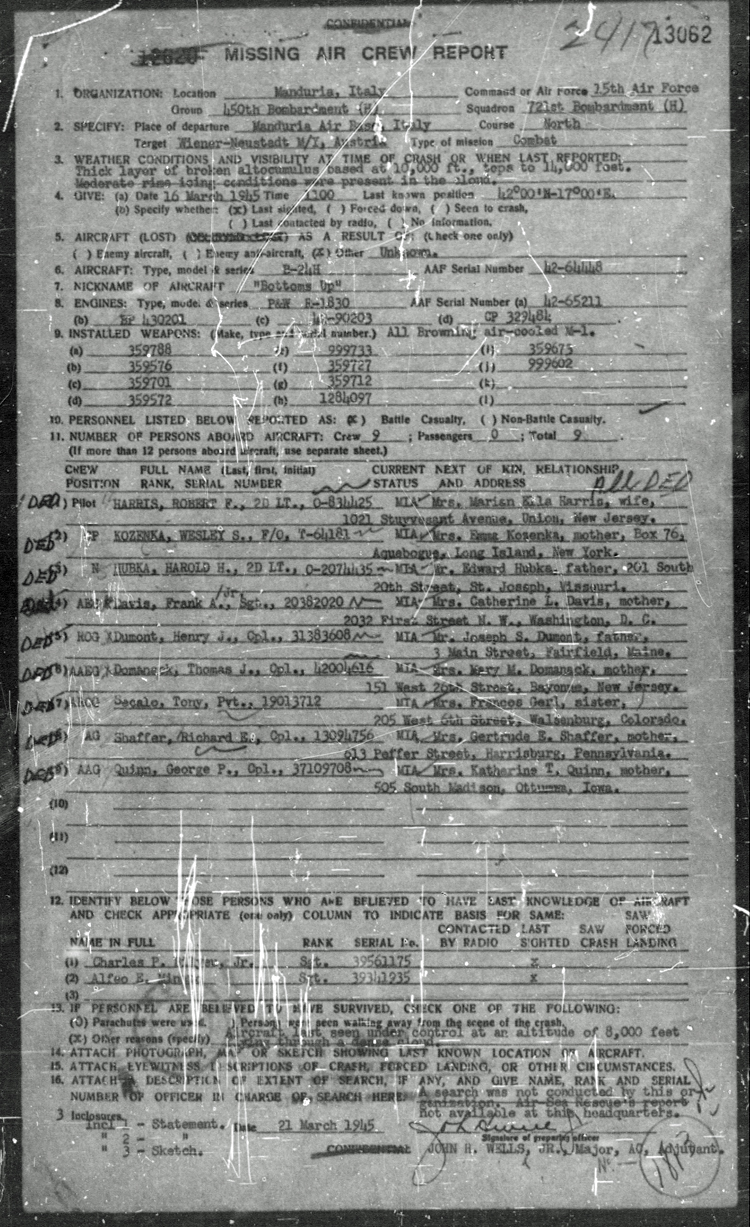 CONFIDENTIAL
12620 MISSING AIR CREW REPORT 2417 13062
1. ORGANIZATION: Location Manduria, Italy Command or Air Force 15th Air Force
Group 450th Bombardment (H) Squadron 721st Bombardment (H)
2. SPECIFY: Place of departure Manduria Air Base, Italy Course North
Target Wiener-Neustadt M/Y, Austria Type of mission Combat
3. WEATHER CONDITIONS AND VISIBILITY AT TIME OF CRASH OR WHEN LAST REPORTED:
Thick layer of broken altocumulus based at 10,000 ft., tops to 14,000 feet.
Moderate rime icing conditions were present in the cloud.
4. GIVE: (a) Date 16 March 1945 Time 1100 Last known position 42°00'N-17°00'E.
(b) Specify whether (x) Last sighted, ( ) Forced down, ( ) Seen to crash,
( ) Last contacted by radio, ( ) No information,
5. AIRCRAFT (LOST) AS A RESULT OF: (Check one only)
( ) Enemy aircraft, ( ) Enemy anti-aircraft, (X) Other Unknown.
6. AIRCRAFT: Type, model & series B-24H AAF Serial Number 42-64448
7. NICKNAME OF AIRCRAFT "Bottoms Up"
8. ENGINES: Type, model & series P&W R-1830 AAF Serial Number (a) 42-65211
(b) BP 430201 (c) 42-90203 (d) CP 329484
9. INSTALLED WEAPONS: (Make, type and serial number.) All Browning air-cooled M-1.
(a) 359788 (e) 999733 (i) 359675
(b) 359576 (f) 359727 (j) 999602
(c) 359701 (g) 359712 (k)
(d) 359572 (h) 1284097 (l)
10. PERSONNEL LISTED BELOW REPORTED AS: (X) Battle Casualty, ( ) Non-Battle Casualty.
11. NUMBER OF PERSONS ABOARD AIRCRAFT: Crew 9 ; Passengers 0 ; Total 9 .
(If more than 12 persons aboard aircraft, use separate sheet.)
CREW FULL NAME (Last, first, initial) CURRENT NEXT OF KIN, RELATIONSHIP
POSITION RANK, SERIAL NUMBER STATUS AND ADDRESS All DED
DED 1) Pilot HARRIS, ROBERT F., 2D LT., O-834425 MIA Mrs. Marian Ella Harris, wife,
1021 Stuyvesant Avenue, Union, New Jersey.
DED 2) CP KOZENKA, WESLEY S., F/O, T-64181 MIA Mrs. Emma Kozenka, mother, Box 76,
Aquebogue, Long Island, New York.
DED 3) N HUBKA, HAROLD H., 2D LT., O-2074435 MIA Mr. Edward Hubka, father, 201 South
20th Street, St. Joseph, Missouri.
DED 4) AEG Davis, Frank A., Jr. Sgt., 20382020 MIA Mrs. Catherine L. Davis, mother,
2032 First Street N. W., Washington, D. C.
DED 5) ROG Dumont, Henry J., Cpl., 31383608 MIA Mr. Joseph S. Dumont, father,
3 Main Street, Fairfield, Maine.
DED 6) AAEG Domanack, Thomas J., Cpl., 42004616 MIA Mrs. Mary M. Domanack, mother,
151 West 26th Street, Bayonne, New Jersey.
DED 7) AROG Secalo, Tony, Pvt., 19013712 MIA Mrs. Frances Gerl, sister,
205 West 6th Street, Walsenburg, Colorado.
DED 8) AG Shaffer, Richard E., Cpl., 13094756 MIA Mrs. Gertrude E. Shaffer, mother,
613 Peffer Street, Harrisburg, Pennsylvania.
DED 9) AAG Quinn, George P., Cpl., 37109708 MIA Mrs. Katherine T. Quinn, mother,
505 South Madison, Ottumwa, Iowa.
(10)
(11)
(12)
12. IDENTIFY BELOW THOSE PERSONS WHO ARE BELIEVED TO HAVE LAST KNOWLEDGE OF AIRCRAFT
AND CHECK APPROPRIATE (one only) COLUMN TO INDICATE BASIS FOR SAME: SAW
CONTACTED LAST SAW FORCED
NAME IN FULL RANK SERIAL No. BY RADIO SIGHTED CRASH LANDING
(1) Charles P. Jr. Sgt. 39561175 x
(2) Alfeo E. Sgt. 39341935 x
(3)
13. IF PERSONNEL ARE BELIEVED TO HAVE SURVIVED, CHECK ONE OF THE FOLLOWING:
(O) Parachutes were used. ( ) Persons were seen walking away from the scene of the crash.
(X) Other reasons (specify) Aircraft last seen under control at an altitude of 8,000 feet
flying through a dense cloud.
14. ATTACH PHOTOGRAPH, MAP OR SKETCH SHOWING LAST KNOWN LOCATION OF AIRCRAFT.
15. ATTACH EYEWITNESS DESCRIPTIONS OF CRASH, FORCED LANDING, OR OTHER CIRCUMSTANCES.
16. ATTACH A DESCRIPTION OF EXTENT OF SEARCH, IF ANY, AND GIVE NAME, RANK AND SERIAL
NUMBER OF OFFICER IN CHARGE OF SEARCH HERE A search was not conducted by this or-
ganization. Air-Sea Rescue's report
Not available at this headquarters.
3 Inclosures
Incl 1 - Statement. Date 21 March 1945
" 2 - " Signature of preparing officer
" 3 - Sketch. CONFIDENTIAL JOHN H. WELLS, JR., Major, AC, Adjutant.